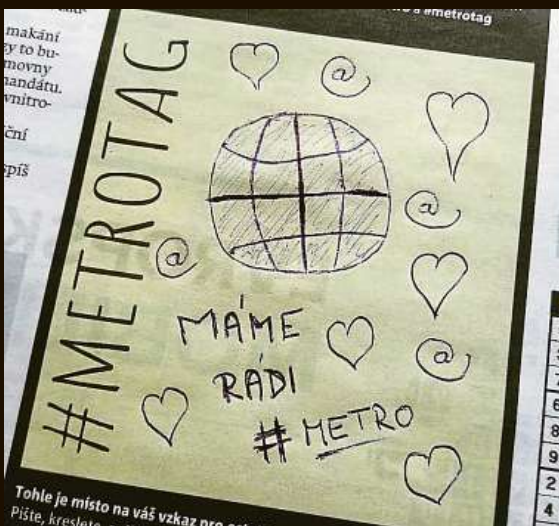 a #metrotag
makání
zy to bu-
movny
mandátu.
vnitro-
ční
spíš
#METROTAG
@
@
@
@
MÁME
RÁDI
# METRO
Tohle je místo na váš vzkaz pro
Pište, kreslete
6
8
9
2
4